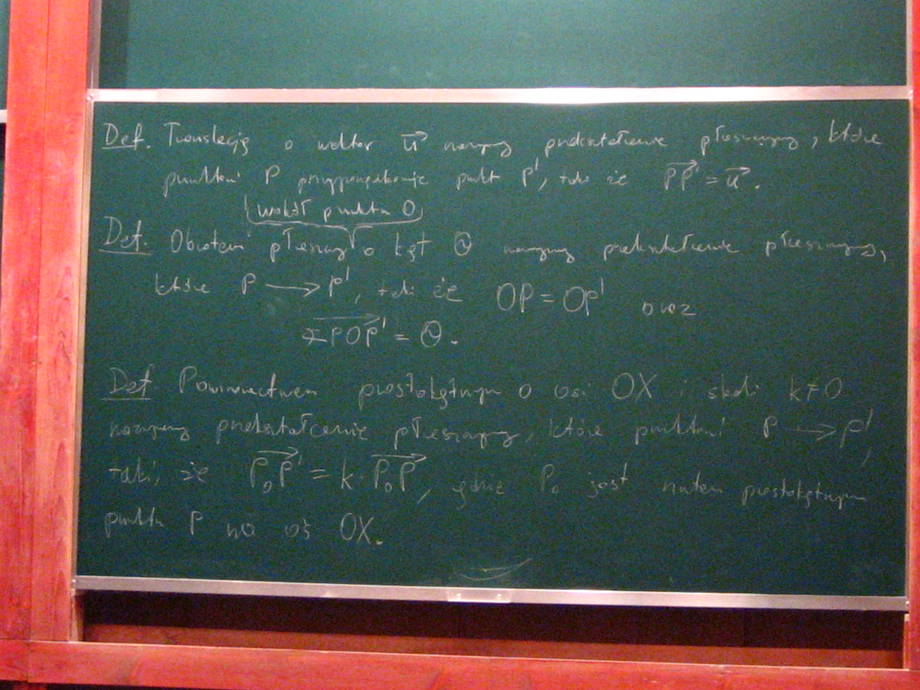 Def. Translacją o wektor u⃗ nazywamy przekształcenie płaszczyzny, które
punktowi P przyporządkowuje punkt P', taki że PP'⃗ = u⃗.
wokół punktu O
Def. Obrotem płaszczyzny o kąt Θ nazywamy przekształcenie płaszczyzny,
które P → P', taki że OP = OP' oraz
∡POP'⃗ = Θ.
Def Powinowactwem prostokątnym o osi OX i skali k ≠ 0
nazywamy przekształcenie płaszczyzny, które punktowi P → P',
taki, że P₀P'⃗ = k · P₀P⃗, gdzie P₀ jest rzutem prostokątnym
punktu P na oś OX.